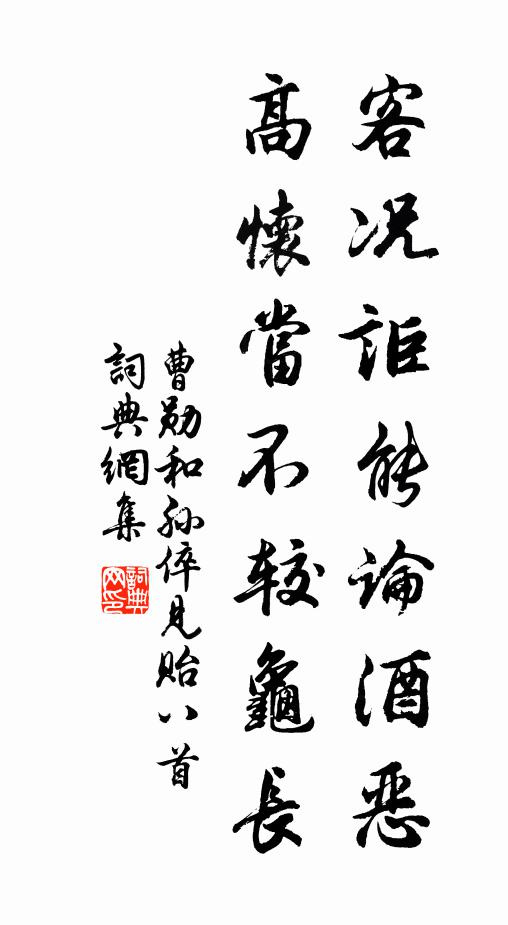 客况詎能論酒惡
高懷當不較龜長
曹勛和孙倅見貽八首
詞典網集
詞典网印